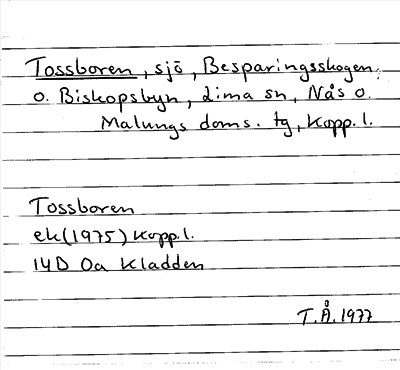 Tossboren, sjö, Besparingsskogen,
o. Biskopsbyn, Lima sn, Nås o.
Malungs doms. tg, Kopp. l.
Tossboren
ek(1975) Kopp. l.
14D 0a Kladden
T.Å. 1977